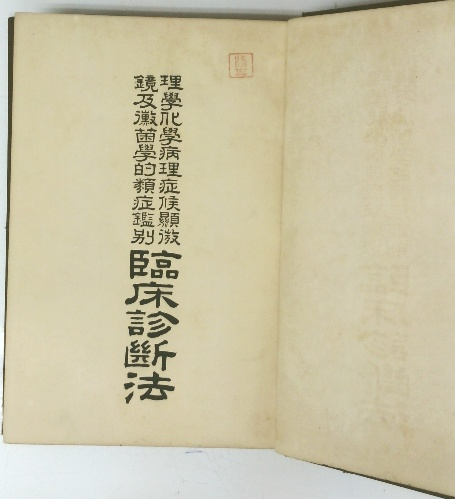 理學化學病理症候顯微
鏡及黴菌學的類症鑑別
臨床診斷法